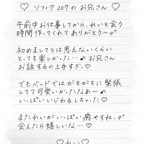 ♡ ソファ 207 の お兄さん ♡
午前中お仕事してから、れいと会う
時間作ってくれてありがとう〜
初めましてとは思えないくらい
とっても楽しかった〜
お話するの上手すぎ♡
でもベッドではガチガチに緊張
してて可愛いかったなぁ〜
いっぱいいじわるしちゃった♡
またれいがいっぱい癒やすね。
会えたら嬉しいな〜♡
♡ れい ♡